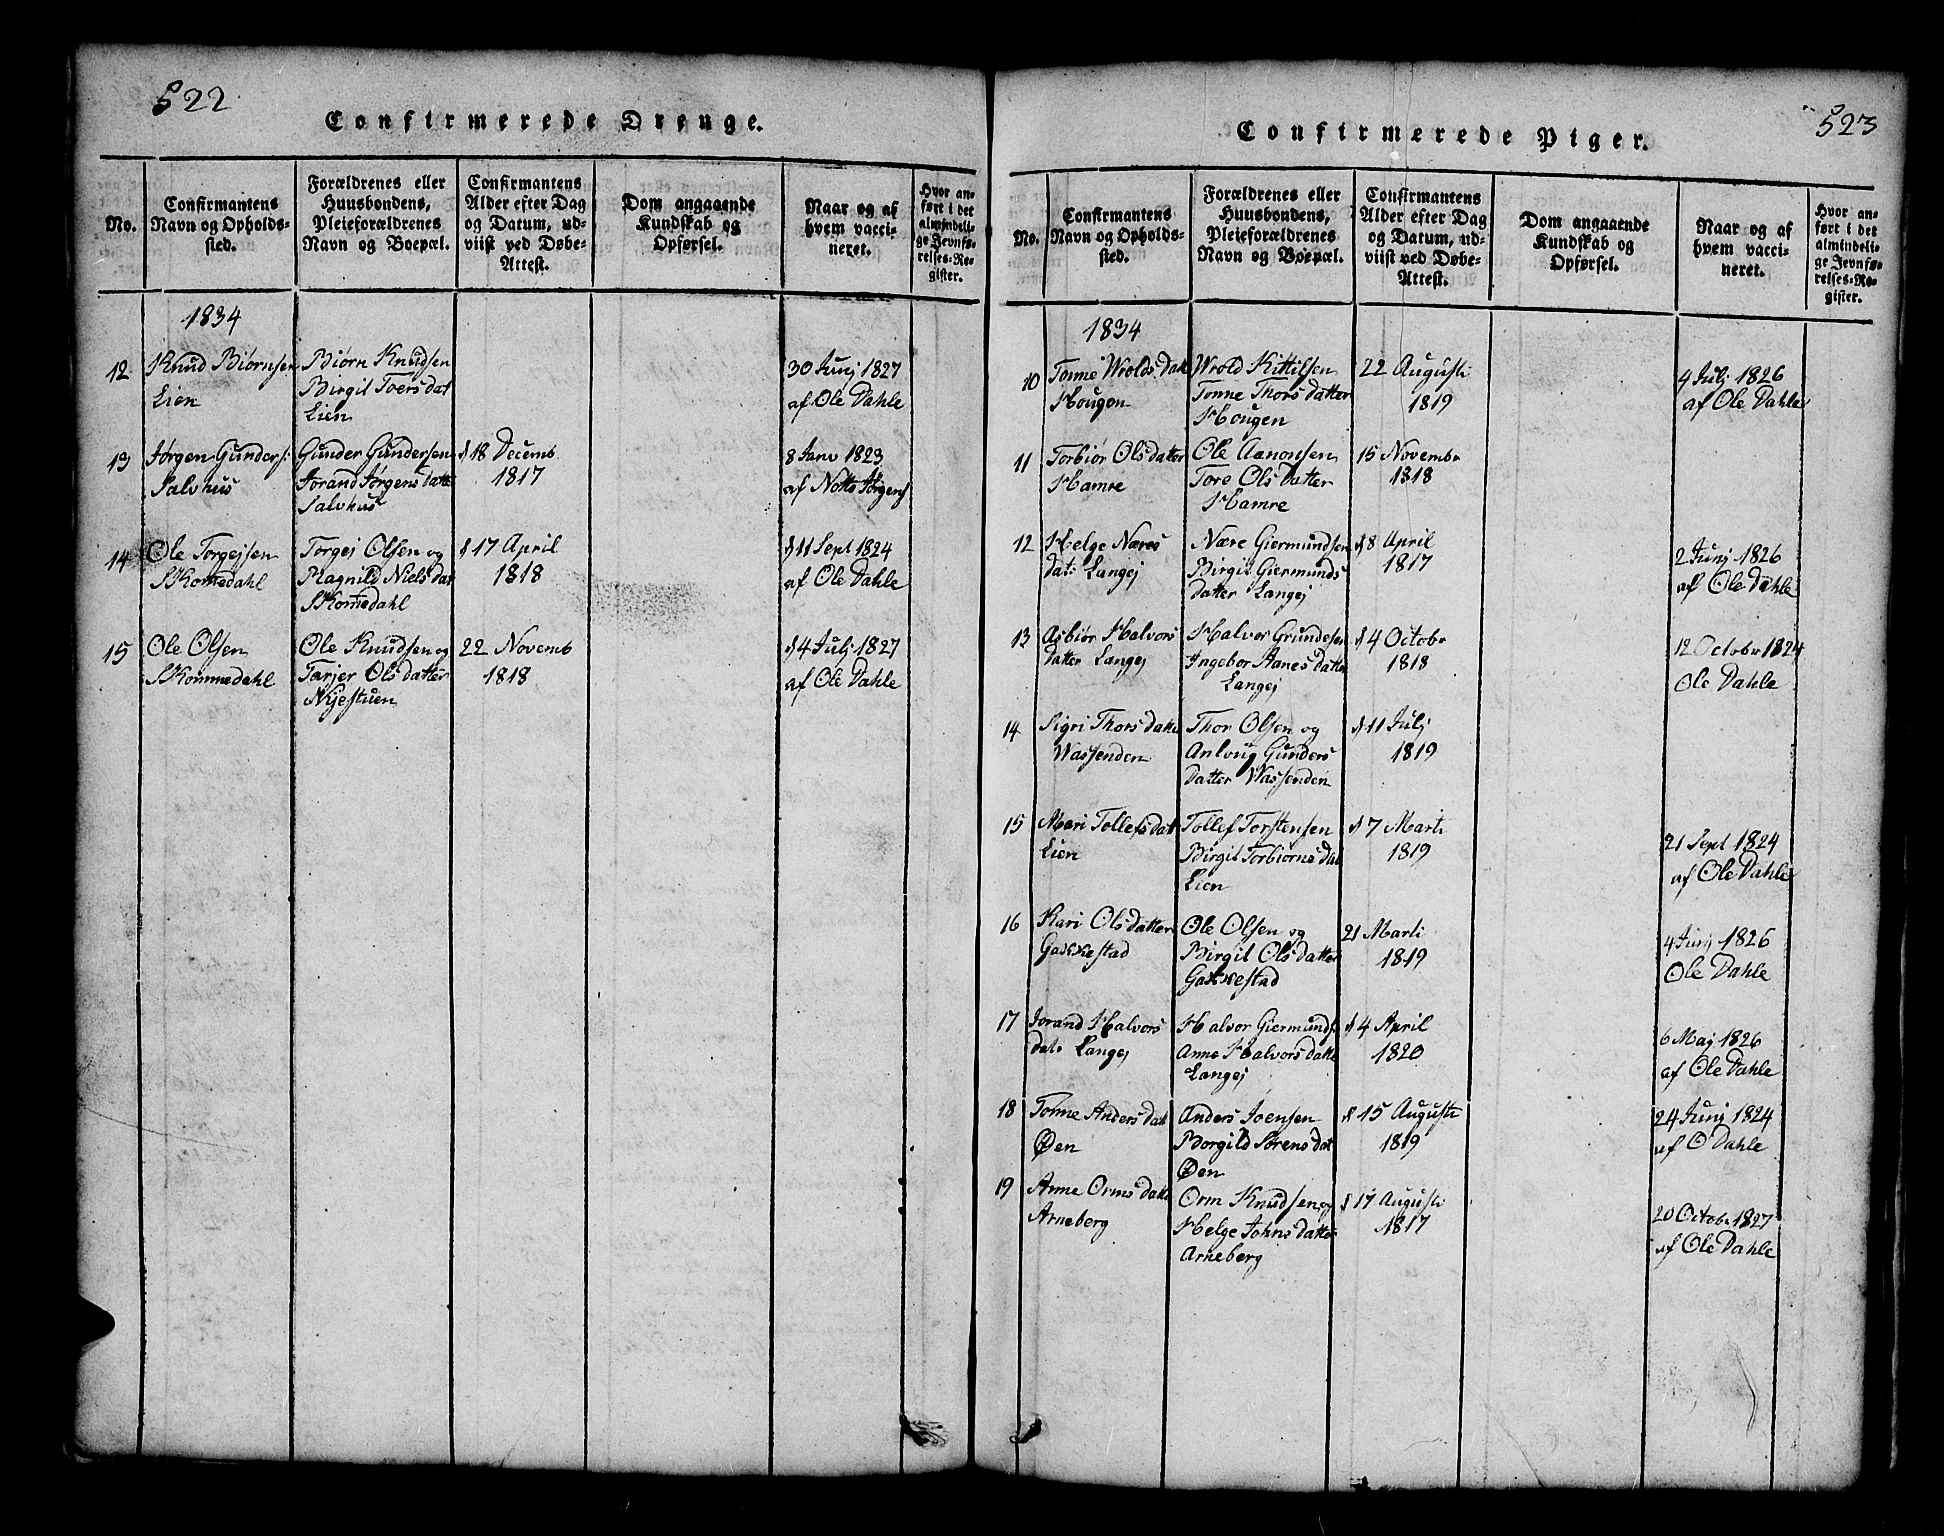 522
Confirmerede Drenge.
No.
Confirmantens
Navn og Opholds-
sted.
Forældrenes eller
Huusbondens,
Pleieforældrenes
Navn og Boepæl.
Confirmantens
Alder efter Dag
og Datum, ud-
viist ved Døbe-
Attest.
Dom angaaende
Kundskab og
Opførsel.
Naar og af
hvem vacci-
neret.
Hvor an-
ført i det
almindeli-
ge Jevnfø-
relses-Re-
gister.
1834
12
Knud Biørnsen
Lien
Biørn Knudsen
Birgit Toersdat
Lien
30 Junj 1827
af Ole Dahle
13
Jørgen Gunders:
Salvhus
Gunder Gundersen
Jorand Jørgensdatt
Salvhus
d 18 Decemb
1817
8 Janv 1823
af Notto Jørgens
14
Ole Torgejsen
Skomedahl
Torgej Olsen og
Ragnild Nielsdat
Skomedahl
d 17 April
1818
d 11 Sept 1824
af Ole Dahle
15
Ole Olsen
Skommedahl
Ole Knudsen og
Tarjer Olsdatter
Nyestuen
22 Novemb
1818
d 4 Julj 1827
af Ole Dahle
523
Confirmerede Piger.
No.
Confirmantens
Navn og Opholds-
sted.
Forældrenes eller
Huusbondens,
Pleieforældrenes
Navn og Boepæl.
Confirmantens
Alder efter Dag
og Datum, ud-
viist ved Døbe-
Attest.
Dom angaaende
Kundskab og
Opførsel.
Naar og af
hvem vacci-
neret.
Hvor an-
ført i det
almindeli-
ge Jevnfø-
relses-Re-
gister.
1834
10
Tonne Wroldsdatt
Hougen
Wrold Kittilsen
Tonne Thorsdatter
Hougen
22 Augusti
1819
4 Julj 1826
af Ole Dahle
11
Torbiør Olsdatter
Hamre
Ole Aanonsen
Tore Olsdatter
Hamre
15 Novembr
1818
12
Helge Næres
dat: Langej
Nære Giermundsen
Birgit Giermunds
datter Langej
d 8 April
1817
2 Junj 1826
af Ole Dahle
13
Asbiør Halvors
datter Langej
Halvor Grundesen
Ingebor Aanesdatter
Langej
d 4 Octobr
1818
12 October 1824
Ole Dahle
14
Sigri Thorsdatte
Wassenden
Thor Olsen og
Anlaug Gunders
datter Wassenden
d 11 Julj
1819
15
Mari Tollefsdat
Lien
Tollef Torstensen
Birgit Torbiørnsdat
Lien
d 7 Marti
1819
21 Sept 1824
af Ole Dahle
16
Kari Olsdatter
Gakkestad
Ole Olsen og
Birgit Olsdatter
Gakkestad
21 Marti
1819
4 Junj 1826
Ole Dahle
17
Jorand Halvors
dat: Langej
Halvor Giermunds
Anne Halvorsdatte
Langej
d 4 April
1820
6 Maj 1826
af Ole Dahle
18
Tonne Andersdat
Øen
Anders Joensen
Borgild Sørensdat
Øen
d 15 Augusti
1819
24 Junj 1824
af O Dahle
19
Anne Ormsdatte
Arneberg
Orm Knudsen og
Helge Johnsdatter
Arneberg
d 17 Augusti
1817
20 Octobr 1827
af Ole Dahle